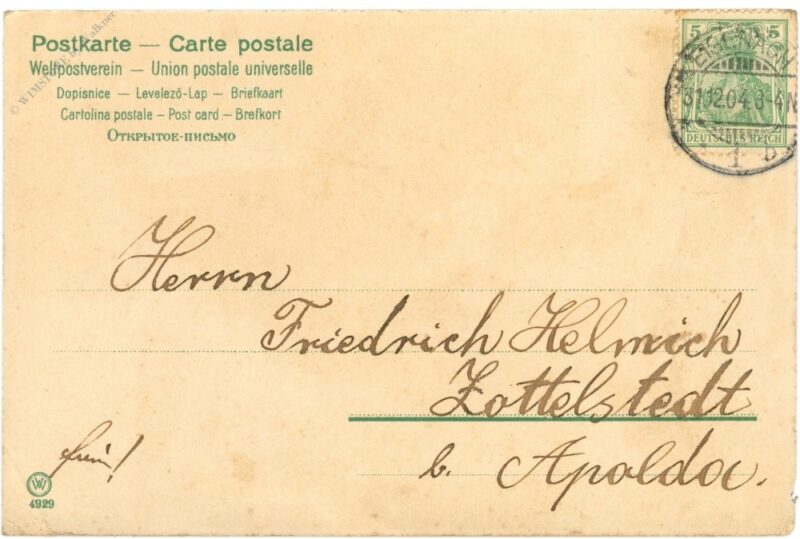 Postkarte — Carte postale
Weltpostverein — Union postale universelle
Dopisnice — Levelező-Lap — Briefkaart
Cartolina postale — Post card — Brefkort
Открытое-письмо
5 5
DEUTSCHES REICH
EISENACH
31.12.04.3-4N
1 b
Herrn
Friedrich Helmich
Zottelstedt
b. Apolda.
frei!
W
4929